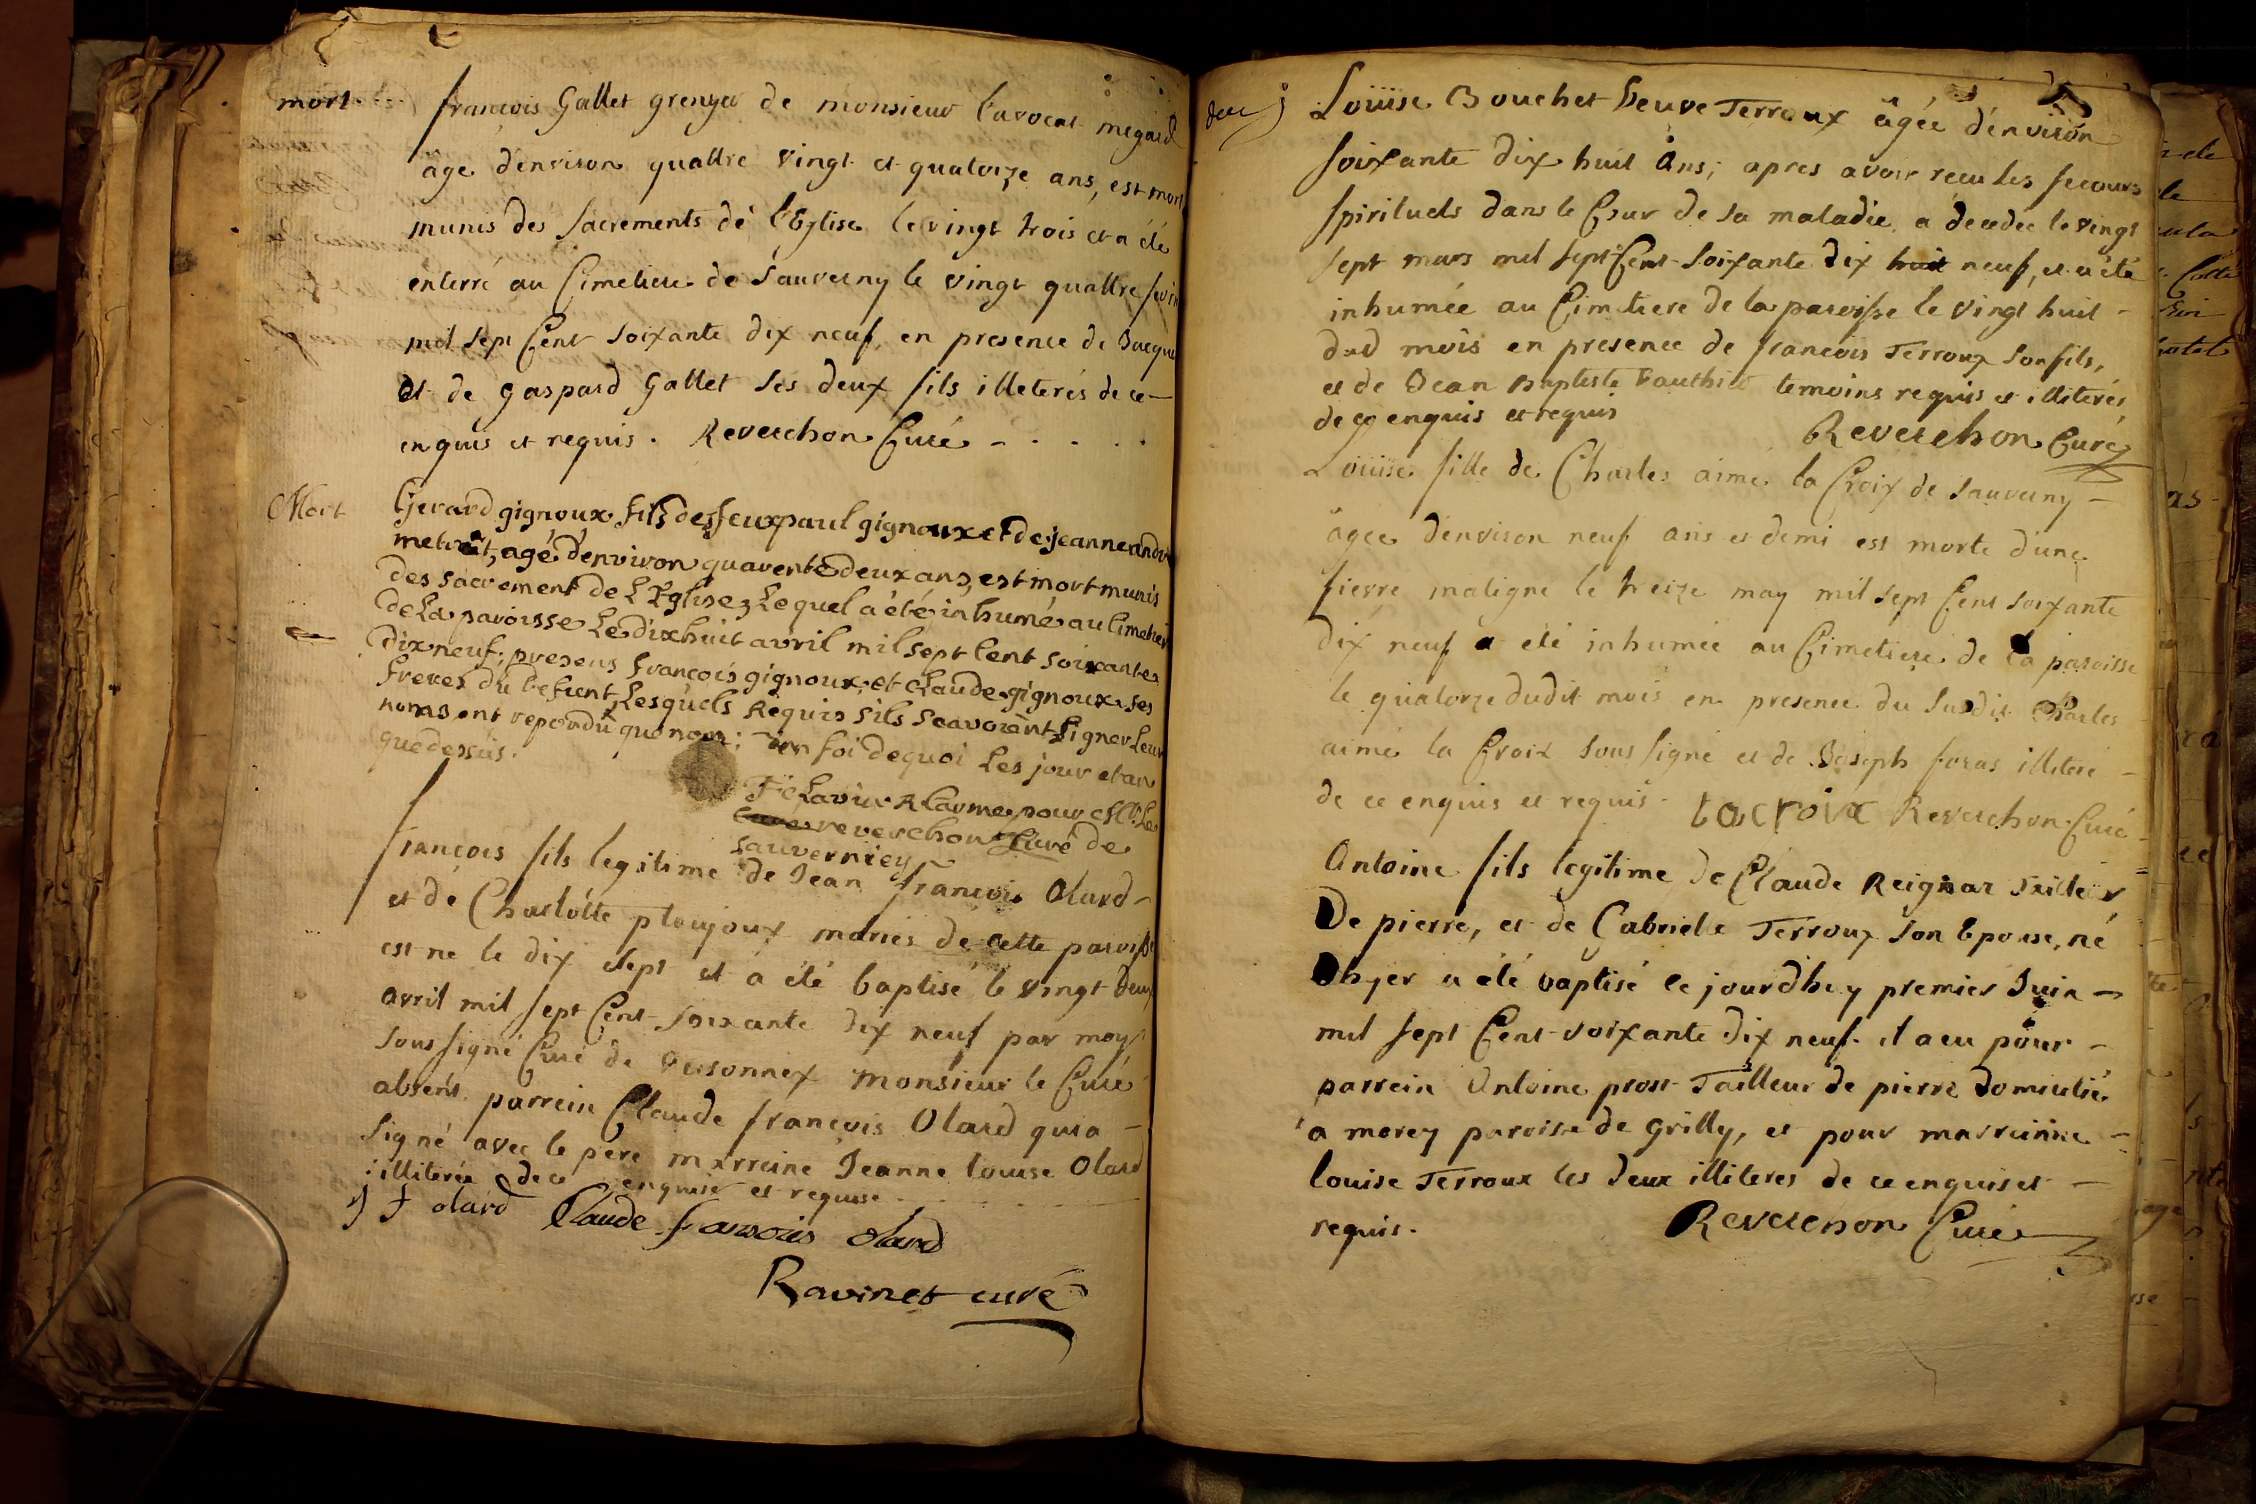 mort
françois Gallet grenger de monsieur l'avocat megard
âge d'environ quattre vingt et quatorze ans, est mort
munis des sacrements de l'Eglise le vingt trois et a été
enterré au Cimetiere de Sauverny le vingt quattre
mil sept Cent soixante dix neuf, en presence de Jacque
et de gaspard Gallet ses deux fils illeterés de ce
enquis et requis. Reverchon Curé
Mort
Gerard gignoux fils des feux paul gignoux et de jeanne
agé d'environ quarente deux ans, est mort munis
des sacrement de L'Eglise; Lequel a été inhumé au Cimetier
de La paroisse Le dix huit avril mil sept Cent soixante
dix neuf; presens françois gignoux, et Claude gignoux ses
freres du Defunt, Lesquels Requis s'ils scavoient signer Leur
noms ont repondu que non; en foi de quoi Les jour et an
que dessus.
reverchon Curé de
sauverniey
françois fils legitime de Jean françois Olard
et de Charlotte ploujoux mariés de cette paroisse
est ne le dix sept et a été baptisé le vingt deux
avril mil sept Cent soixante dix neuf par moy
sous signé Curé de versonnex monsieur le Curé
absent. parrein Claude françois Olard qui a
signé avec le pere marreine Jeanne louise Olard
illiterée de ce enquise et requise
J f olard Claude françois olard
Ravinet curé
Loüise Bouchet veuve Terroux âgée d'environ
soixante dix huit ans; apres avoir recu les secours
spirituels dans le Cour de sa maladie, a decedee le vingt
sept mars mil sept Cent soixante dix huit neuf, et a été
inhumée au Cimetiere de la paroisse le vingt huit
dud mois en presence de francois Terroux son fils,
et de Jean Baptiste temoins requis et illiterés
de ce enquis et requis
Reverchon Curé
Loüise fille de Charles aimé la Croix de Sauverny
âgée d'environ neuf ans et demi est morte d'une
fievre maligne le treize may mil sept Cent soixante
dix neuf a eté inhumée au Cimetiere de la paroisse
le quatorze dudit mois en presence du susdit Charles
aimé la Croix sous signé et de Joseph foras illiteré
de ce enquis et requis. lacroix Reverchon Curé
Antoine fils legitime de Claude Reignar Tailleur
De pierre, et de Gabrielle Terroux son Epouse, né
Ohyer a été baptisé ce jourdhuy premier Juin
mil sept Cent soixante dix neuf. il a eu pour
parrein Antoine prost Tailleur de pierre domicilié
a morey paroisse de Grilly, et pour marreinne
louise Terroux les deux illiteres de ce enquis et
requis.
Reverchon Curé